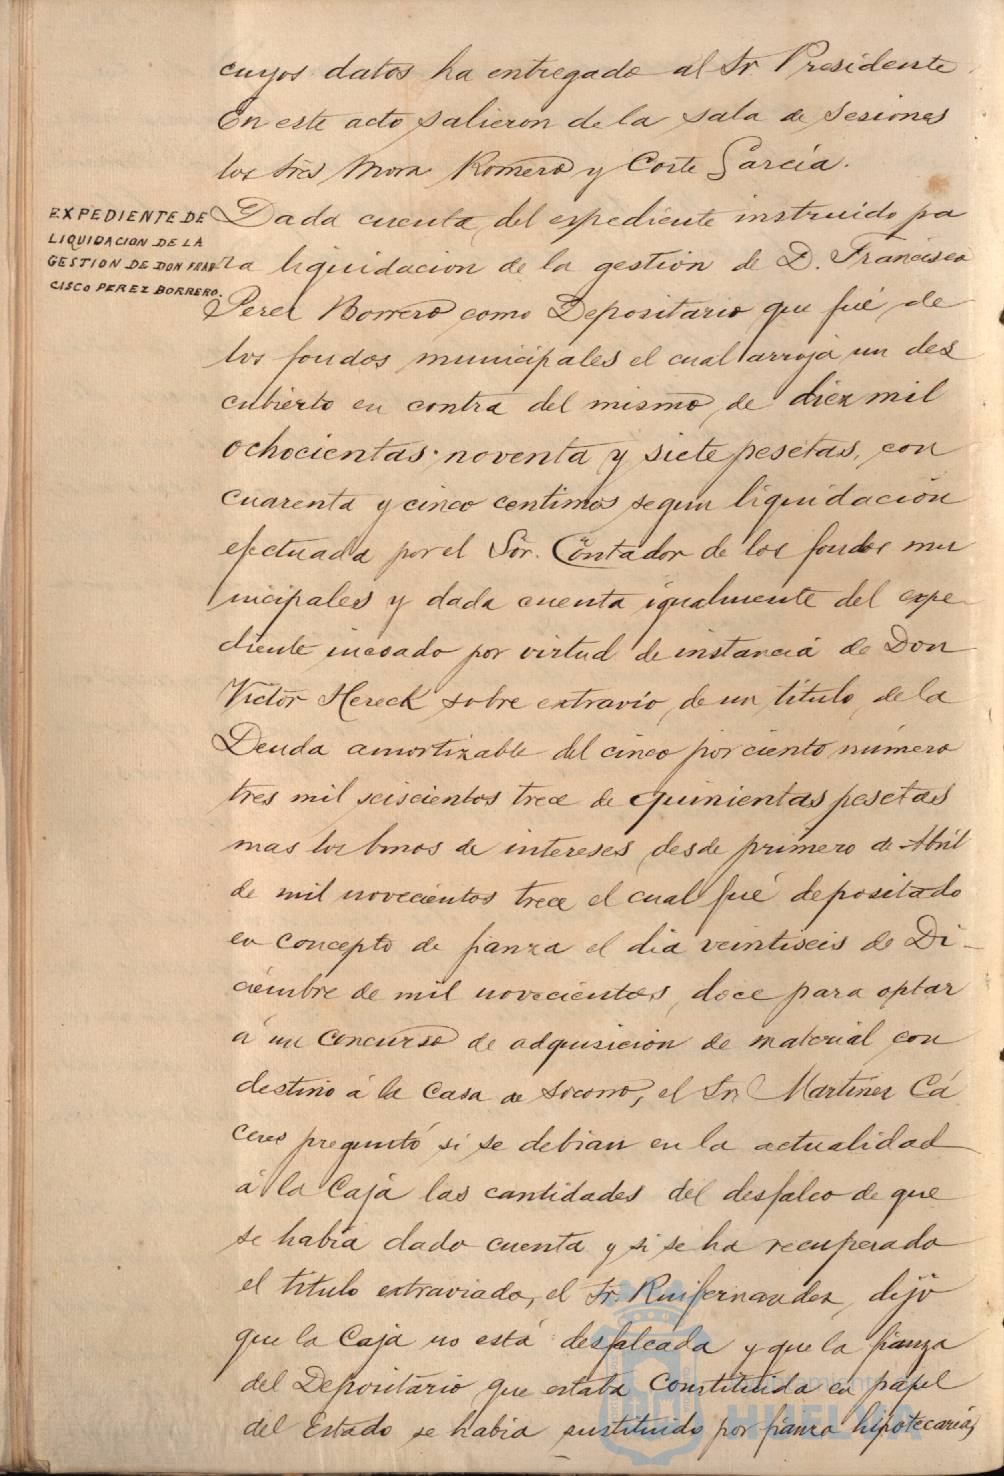 cuyos datos ha entregado al Sr Presidente
En este acto salieron de la sala de Sesiones
los sres Mora Romero y Corte García.
EXPEDIENTE DE
LIQUIDACION DE LA
GESTION DE DON FRAN
CISCO PEREZ BORRERO.
Dada cuenta del expediente instruido pa
ra liquidacion de la gestión de D. Francisco
Perez Borrero como Depositario que fué de
los fondos municipales el cual arroja un des
cubierto en contra del mismo de diez mil
ochocientas noventa y siete pesetas, con
cuarenta y cinco centimos segun liquidación
efectuada por el Sör. Contador de los fondos mu
nicipales y dada cuenta igualmente del expe-
diente incoado por virtud de instancia de Don
Victor Hereck sobre extravio de un titulo de la
Deuda amortizable del cinco por ciento número
tres mil seiscientos trece de quinientas pesetas
mas los bnos de intereses desde primero de Abril
de mil novecientos trece el cual fué depositado
en concepto de fianza el dia veintiseis de Di-
ciembre de mil novecientos doce para optar
á un concurso de adquisicion de material con
destino á la Casa de Socorro, el Sr. Martinez Cá
ceres preguntó si se debian en la actualidad
á la Caja las cantidades del desfalco de que
se habia dado cuenta y si se ha recuperado
el titulo extraviado, el Sr. Ruifernandez, dijo
que la Caja no está desfalcada y que la fianza
del Depositario que estaba constituida en papel
del Estado se habia sustituido por fianza hipotecaria,
Ayuntamiento
HUELVA